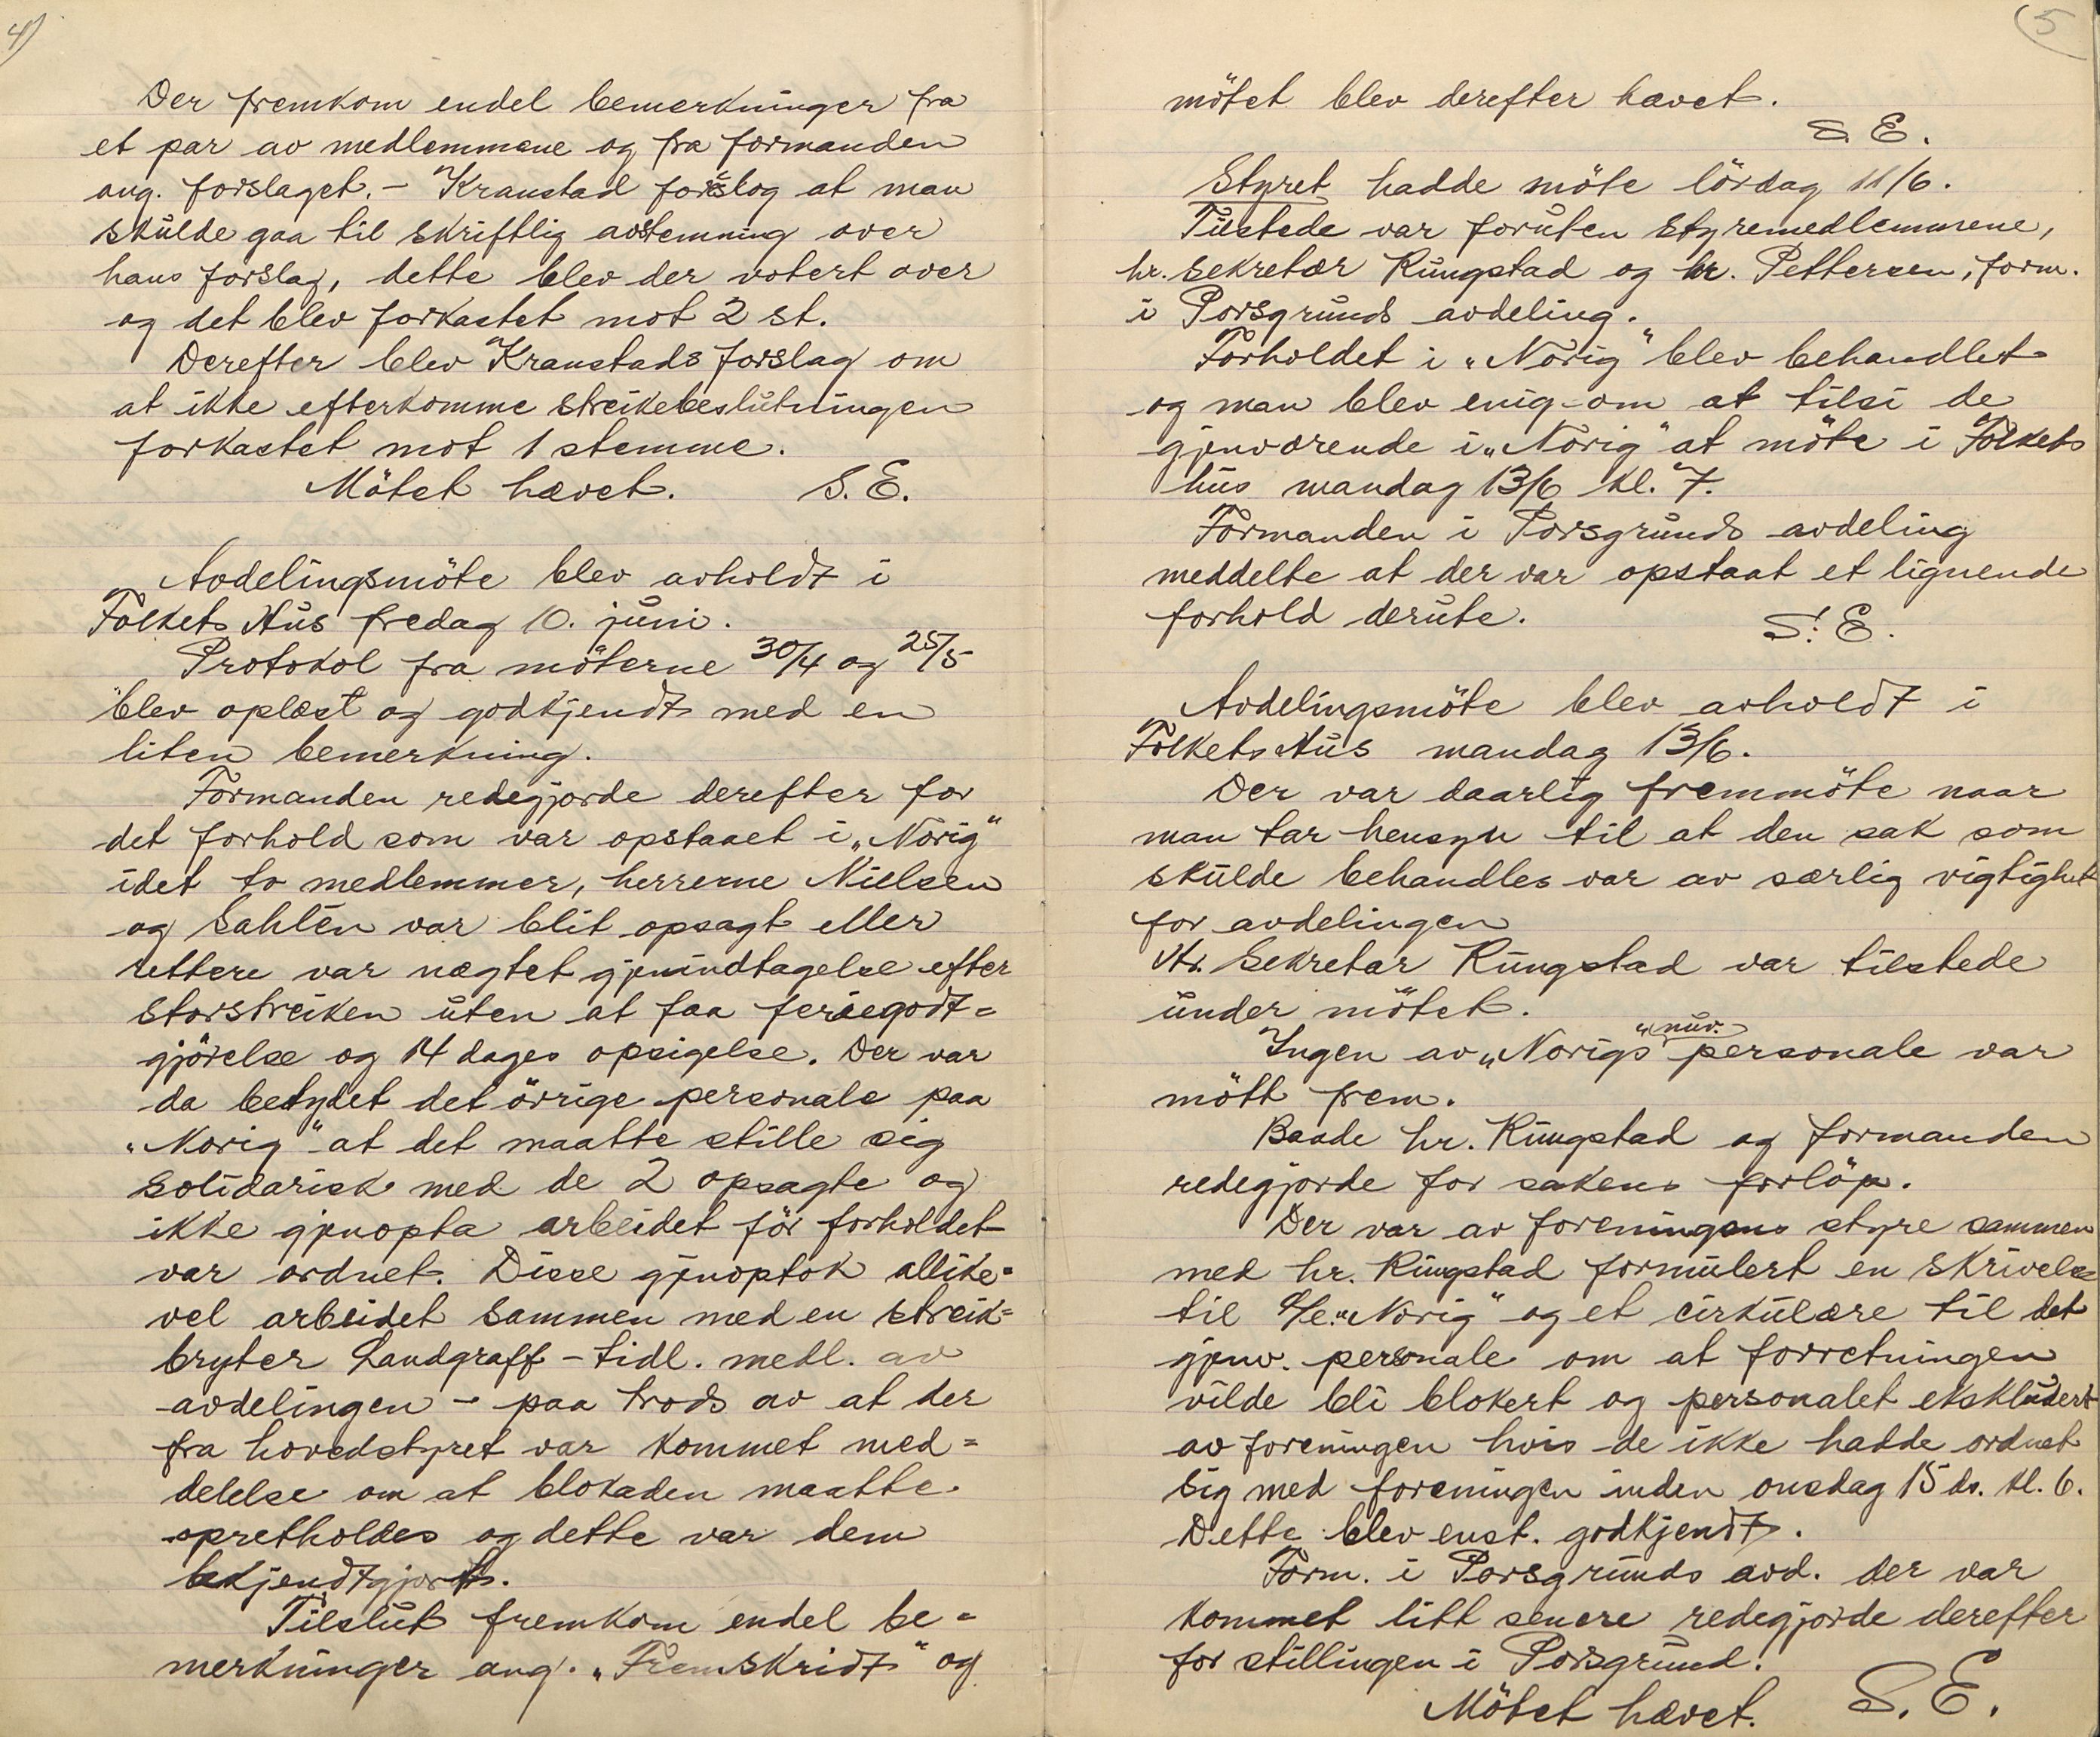 4)
Der fremkom endel bemerkninger fra
et par av medlemmene og fra formanden
ang. forslaget. – Kranstad forslog at man
skulde gaa til skriftlig avstemning over
hans forslag, dette blev der votert over
og det blev forkastet mot 2 st.
Derefter blev Kranstads forslag om
at ikke efterkomme streikebeslutningen
forkastet mot 1 stemme.
Mötet hævet. S. E.
Avdelingsmöte blev avholdt i
Folkets Hus fredag 10. juni.
Protokol fra möterne 30/4 og 25/5
blev oplæst og godkjendt med en
liten bemerkning.
Formanden redegjorde derefter for
det forhold som var opstaaet i „Norig“
idet to medlemmer, herrerne Nielsen
og Sahlén var blit opsagt eller
rettere var nægtet gjenindtagelse efter
storstreiken uten at faa feriegodt=
gjörelse og 14 dages opsigelse. Der var
da betydet det övrige personale paa
„Norig“ at det maatte stille sig
solidarisk med de 2 opsagte og
ikke gjenopta arbeidet för forholdet
var ordnet. Disse gjenoptok allike=
vel arbeidet sammen med en streik=
bryter Landgraff – tidl. medl. av
avdelingen – paa trods av at der
fra hovedstyret var kommet med=
delelse om at blokaden maatte
opretholdes og dette var dem
bekjendtgjort.
Tilslut fremkom endel be=
merkninger ang. „Fremskridt“ og
5
mötet blev derefter hævet.
S E.
Styret hadde möte lördag 11/6.
Tilstede var foruten styremedlemmene,
hr. sekretær Ringstad og hr. Pettersen, form.
i Porsgrunds avdeling.
Forholdet i „Norig“ blev behandlet
og man blev enig om at tilsi de
gjenværende i „Norig“ at möte i Folkets
hus mandag 13/6 kl. 7.
Formanden i Porsgrunds avdeling
meddelte at der var opstaat et lignende
forhold derute.
S. E.
Avdelingsmöte blev avholdt i
Folkets Hus mandag 13/6.
Der var daarlig fremmöte naar
man tar hensyn til at den sak som
skulde behandles var av særlig vigtighet
for avdelingen
Hr. Sekretær Ringstad var tilstede
under mötet.
Ingen av „Norigs“ nuv. personale var
mött frem.
Baade hr. Ringstad og formanden
redegjorde for sakens forlöp.
Der var av foreningens styre sammen
med hr. Ringstad formulert en skrivelse
til „Norig“ og et cirkulære til det
gjenv. personale om at forretningen
vilde bli blokert og personalet ekskludert
av foreningen hvis de ikke hadde ordnet
sig med foreningen inden onsdag 15 ds. kl. 6.
Dette blev enst. godkjendt.
Form. i Porsgrunds avd. der var
kommet litt senere redegjorde derefter
for stillingen i Porsgrund.
Mötet hævet. S. E.